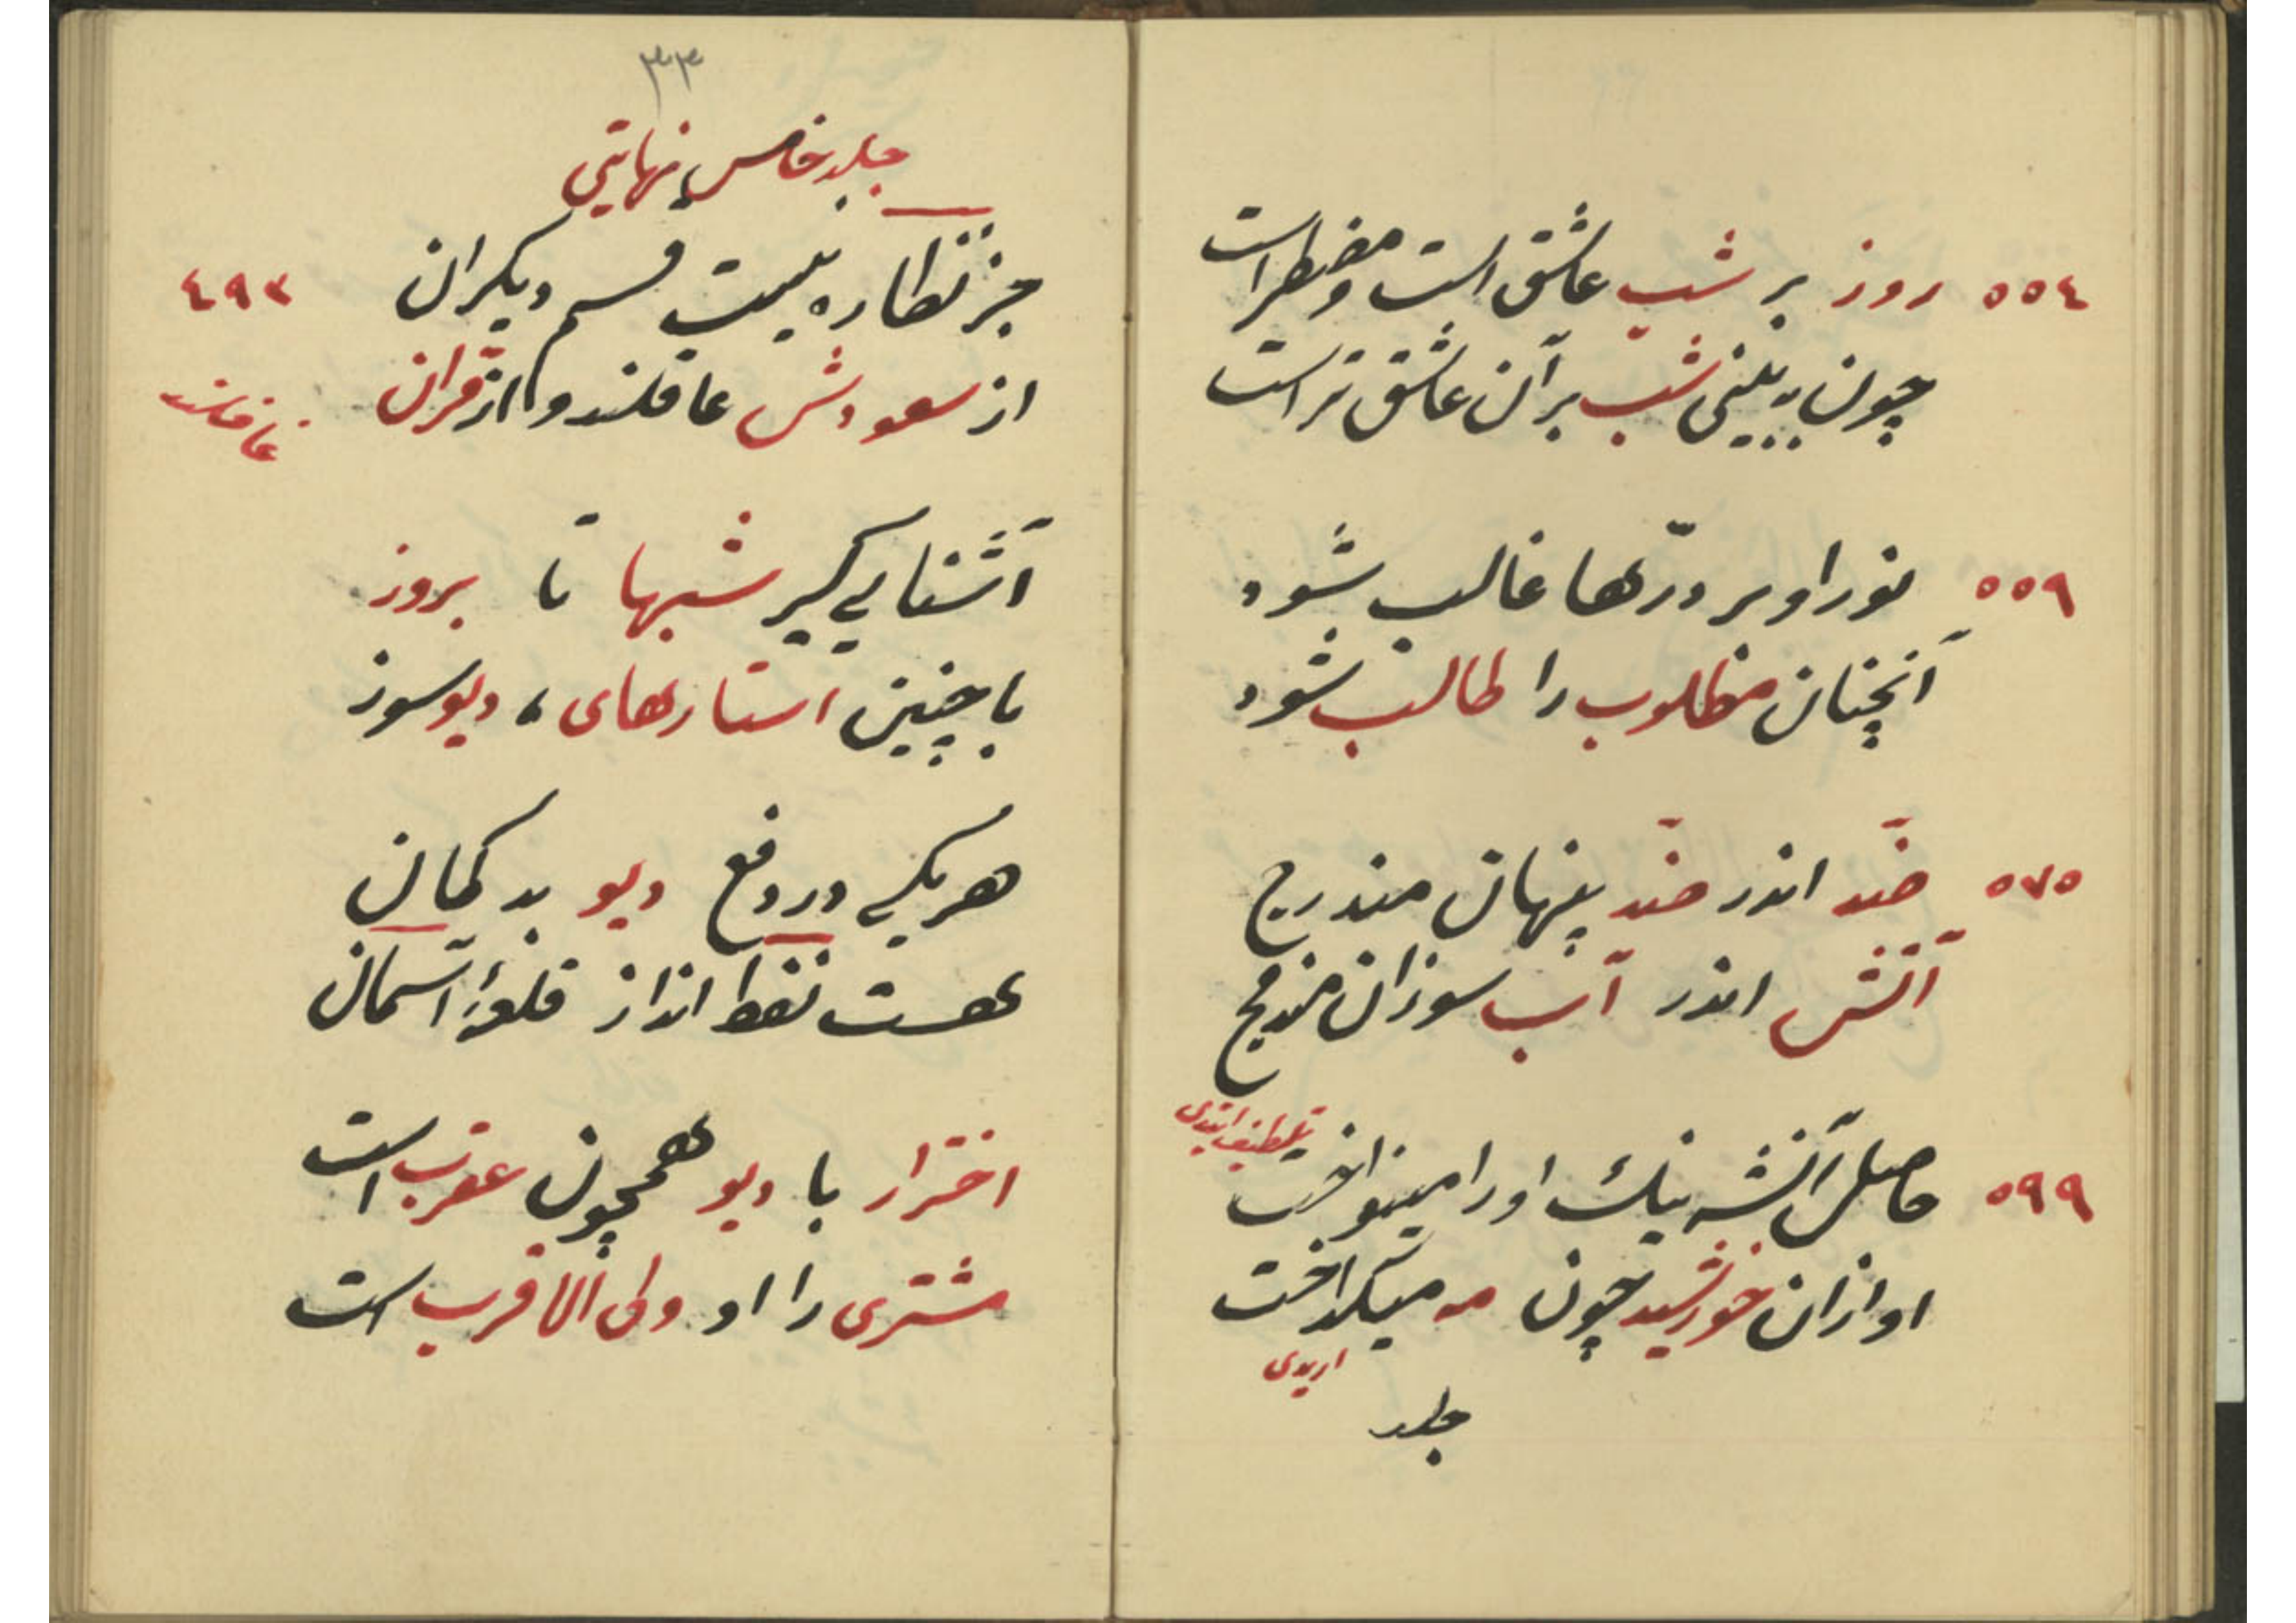 ٥٥٤ روز بر شب عاشق است و مضطر است
چون ببینی شب بر آن عاشق تر است
٥٥٩ نور او بر درّها غالب شود
آنچنان مطلوب را طالب شود
٥٧٥ ضد اندر ضد پنهان مندرج
آتش اندر آب سوزان مندمج
تلطیف ایتدی
٥٩٩ حاصل آنشه نیك اورا مینواخت
او ازان خورشید چون مه میگداخت
اریدی
جلد
٣٣
جلد خامس نهایتی
جز نظاره نیست قسم دیکران ٤٩٣
از سعودش عاقلند و از قران
غافلند
آشنایی گیر شبها تا بروز
با چنین استارهای دیو سوز
هر یکی در دفع دیو بد کمان
هست نفط انداز قلعهٔ آسمان
اختر ار با دیو همچون عقرب است
مشتری را او ولی الاقرب است